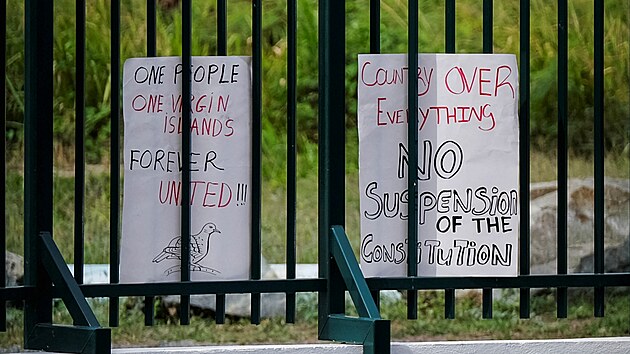 ONE PEOPLE
ONE VIRGIN
ISLANDS
FOREVER
UNITED!!!
COUNTRY OVER
EVERYTHING
NO
SUSPENSION
OF THE
CONSTITUTION